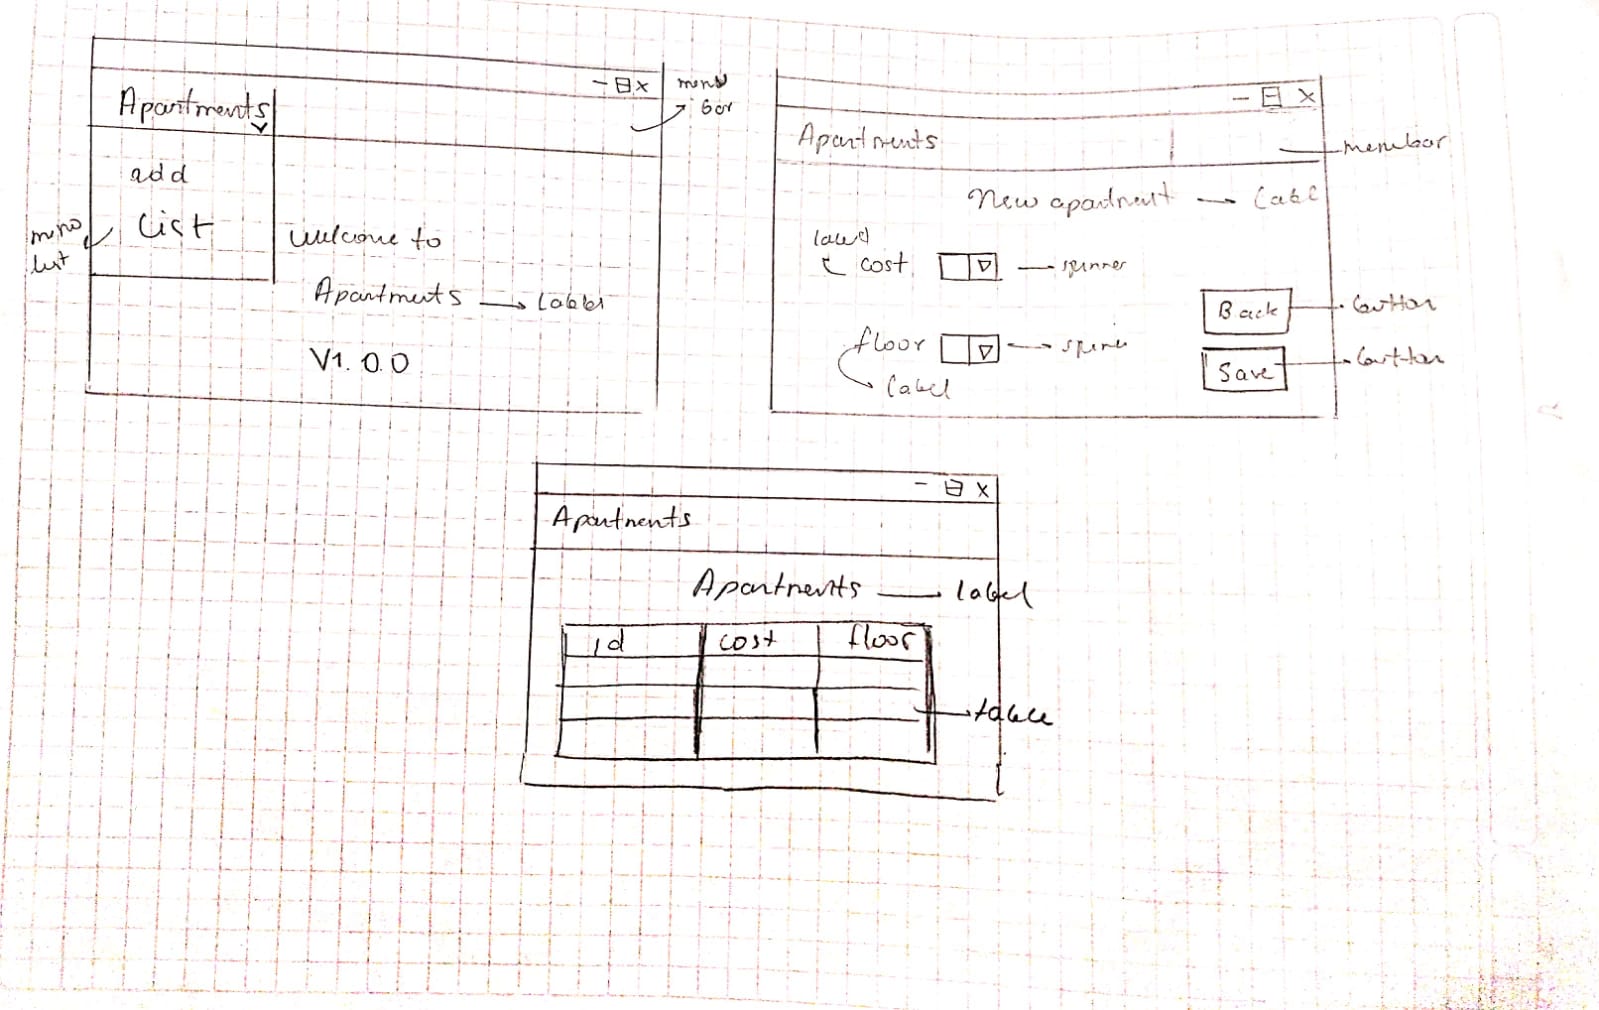 menu
bar
Apartments
add
list
menu
list
Welcome to
Apartments → label
V1.0.0
Apartments
menubar
New apartment → label
label
cost
spinner
Back
button
floor
spinner
label
Save
button
Apartments
Apartments
label
id cost floor
table